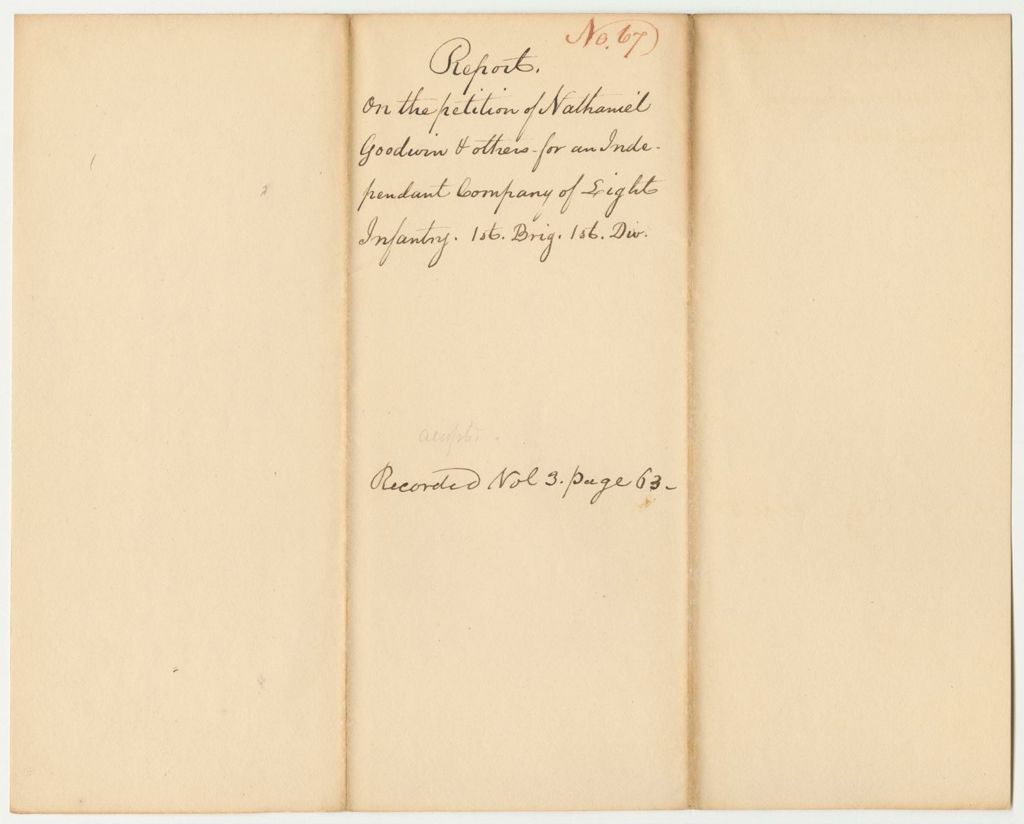 No. 67)
Report.
On the petition of Nathaniel
Goodwin & others for an Inde-
pendant Company of Light
Infantry. 1st. Brig. 1st. Div.
Recorded Vol 3. page 63-